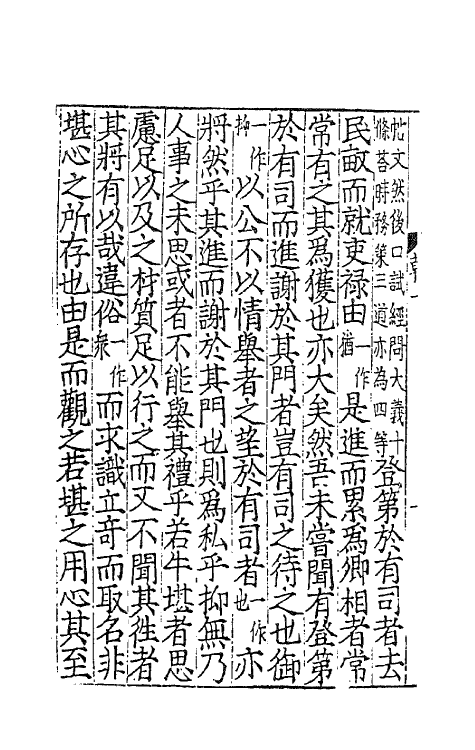 帖文然後口試經問大義十
條荅時務策三道亦為四等
登第於有司者去
民畝而就吏禄由一作猶是進而累爲卿相者常
常有之其爲獲也亦大矣然吾未嘗聞有登第
於有司而進謝於其門者豈有司之待之也御
一作抑以公不以情舉者之望於有司者一作也亦
將然乎其進而謝於其門也則爲私乎抑無乃
人事之未思或者不能舉其禮乎若牛堪者思
慮足以及之材質足以行之而又不聞其徃者
其將有以哉違俗一作衆而求識立竒而取名非
堪心之所存也由是而觀之若堪之用心其至